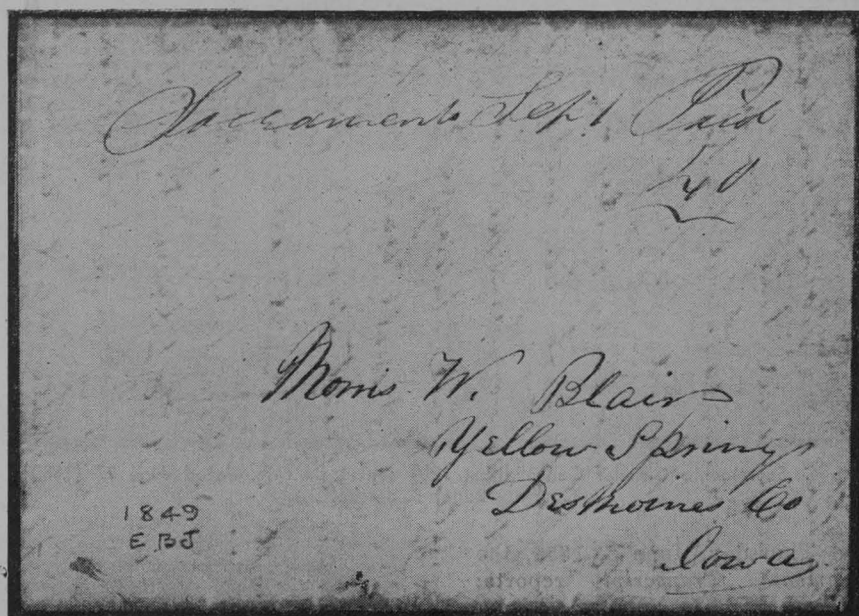 Sacramento Sep 1 Paid
40
Morris W. Blair
Yellow Springs
Desmoines Co
Iowa
1849
E B J